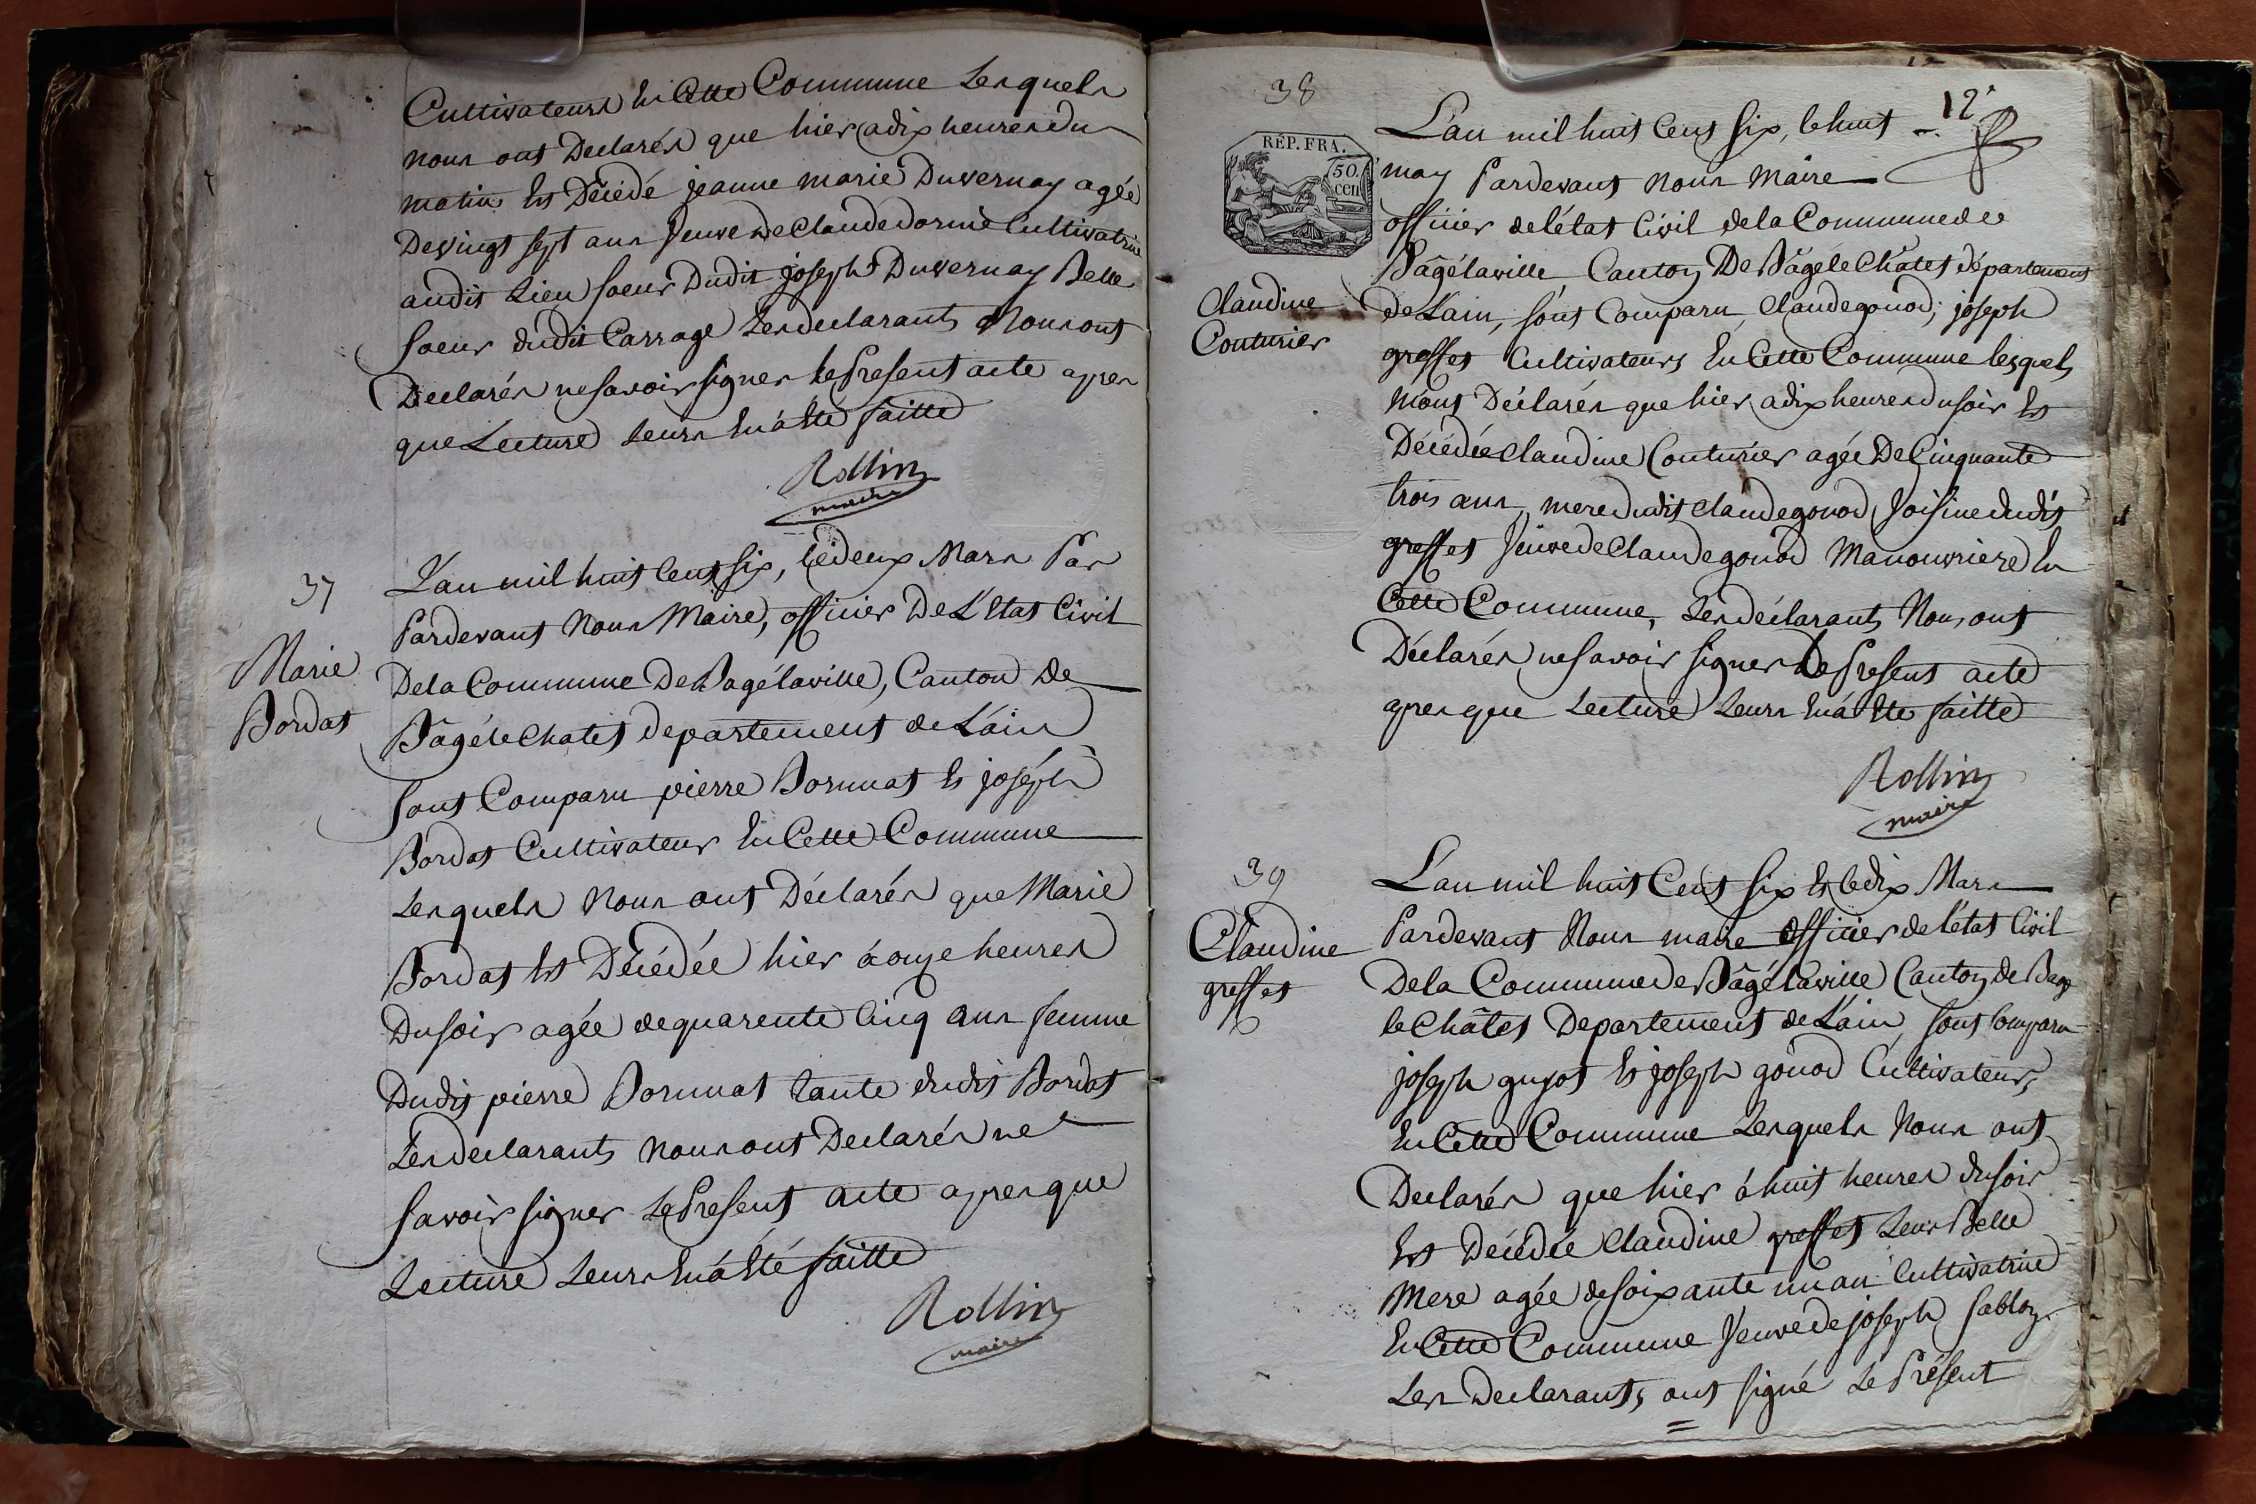 Cultivateurs En Cette Commune Lesquels
nous ont Declarés que hier a dix heures du
matin Est Décédé jeanne marie Duvernay agée
De vingt sept ans veuve de Claude dormé Cultivatrice
audit Lieu soeur Dudit joseph Duvernay Belle
soeur dudit Carrage Les declarants Nous ont
Declarés ne savoir signer le Present acte apres
que Lecture Leurs En á Eté faitte
Rollin
maire
37
Marie
Bordat
L'an mil huit Cent six, le deux Mars Par
Pardevant Nous Maire, officier De L'Etat Civil
De la Commune De Bagélaville, Canton de
Bâgé le Chatet departement de L'ain
sont Comparu pierre Dormat Et joséph
Bordat Cultivateur En Cette Commune
Lesquels Nous ont Déclarés que Marie
Bordat Est Décédée hier á onze heures
Du soir agée de quarente Cinq ans femme
Dudit pierre Dormat tante dudit Bordat
Les declarants nous ont Declarés ne
savoir signer Le Present acte apres que
Lecture Leurs En á Eté faitte
Rollin
maire
38
12
RÉP. FRA.
50.
cen
Claudine
Couturier
L'an mil huit Cent six, le huit
may Pardevant Nous Maire
officier de l'état Civil de la Commune de
Bâgélaville Canton De Bâgé le Châtet département
de L'ain, sont Comparu Claude gonod, joseph
greffet Cultivateurs En Cette Commune lesquels
m'ont Déclarés que hier a dix heures du soir Est
Décédée Claudine Couturier agée De Cinquante
trois ans mere dudit Claude gonod voisine dudit
greffet veuve de Claude gonod Manouvriere En
Cette Commune, Les déclarants Nous ont
Déclarés ne savoir signer Le Present acte
apres que Lecture Leurs En á Ete faitte
Rollin
maire
39
Claudine
greffet
L'an mil huit Cent six Et le dix Mars
Pardevant Nous maire officier de l'état Civil
De la Commune de Bâgélaville Canton de Bage
le Châtet Departement de L'ain sont Comparu
joseph guyot Et joseph gonod Cultivateurs
En Cette Commune Lesquels Nous ont
Declarés que hier á huit heures du soir
Est Décédée Claudine greffet Leur Belle
Mere agée de soixante un an Cultivatrice
En Cette Commune veuve de joseph sablon
Les Declarants ont signé Le Présent